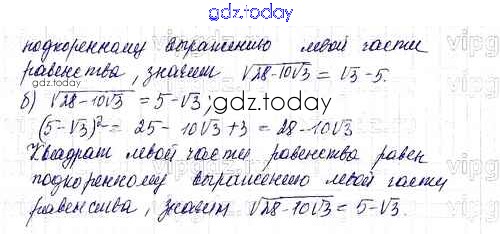 gdz.today
подкоренному выражению левой части
равенства, значит √28-10√3 = √3-5.
б) √28-10√3 = 5-√3;
gdz.today
(5-√3)²= 25-10√3+3 = 28-10√3
Квадрат левой части равенства равен
подкоренному выражению левой части
равенства, значит √28-10√3 = 5-√3.